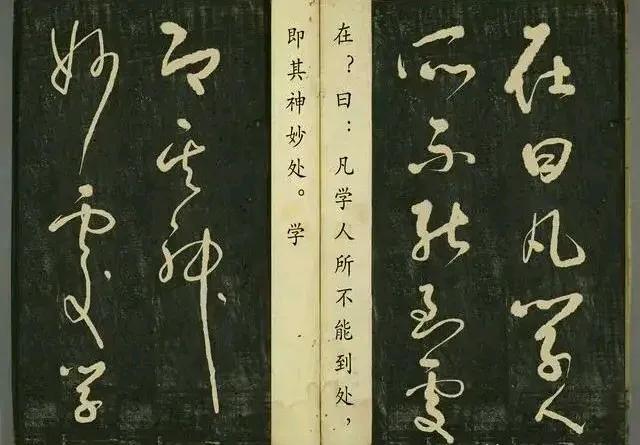 在曰凡学人
所不能到处
在？曰：凡学人所不能到处，
即其神妙处。学
即其神
妙处学